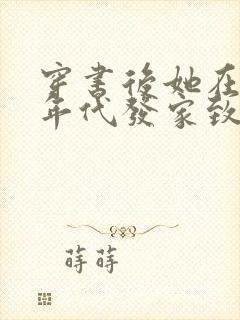 穿書後她在
年代發家致
蒔蒔